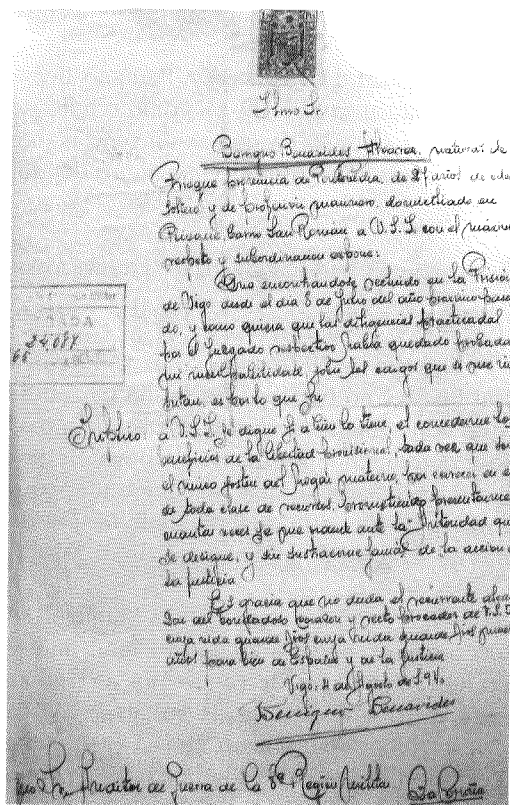 Ilmo Sr.
Benavides Alvarez, natural de
provincia de Pontevedra, de 27 años de eda
soltero y de profesión marinero, domiciliado en
Barrio San Roman a V.S.I. con el máxim
respeto y subordinacion expone:
Que encontrandose recluido en la Prisió
de Vigo desde el dia 8 de Julio del año proximo pasa
do, y como quiera que las diligencias practicadas
por el Juzgado respectivo, había quedado probada
mi sobre los cargos que se me im
putan, es por lo que
Suplico a V.S.I. se digne si a bien lo tiene, el concederme los
beneficios de la libertad provisional, toda vez que soy
el unico sosten del hogar materno, por carecer en e
de toda clase de recursos, prometiendo presentarme
cuantas veces se me mande ante la Autoridad que
se designe, y no sustraerme jamas de la accion d
la justicia
Es gracia que no duda el recurrente alcan
zar del bondadoso corazon y recto proceder de V.S.I.
cuya vida guarde Dios cuya vida guarde Dios
años para bien de España y de la Justicia
Vigo, 4 de Agosto de 194
Benavides
Sr. Auditor de Guerra de la 8ª Region Militar La Coruña
24,088